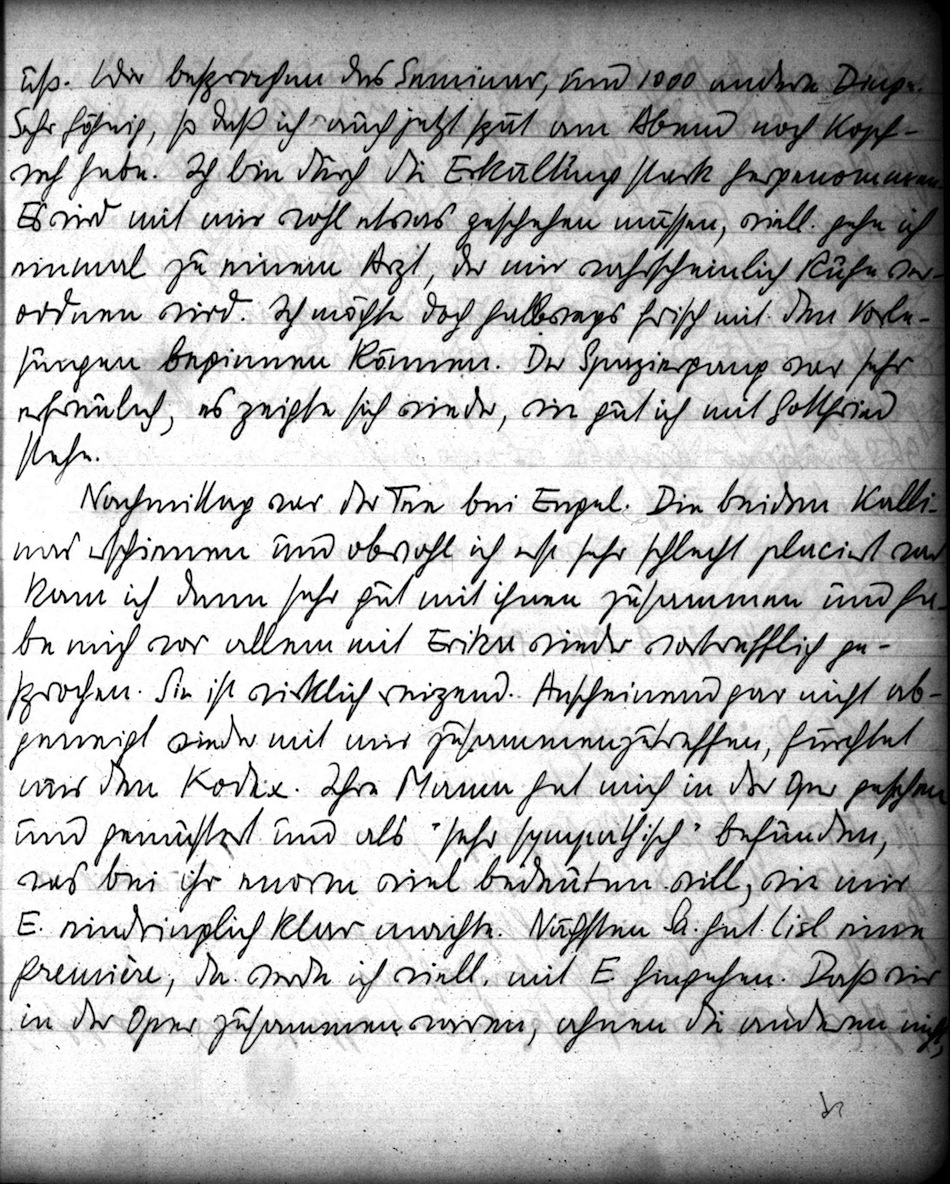 aß. Wir besprachen das Seminar, und 1000 andere Dinge.
Sehr föhnig, so daß ich auch jetzt spät am Abend noch Kopf-
weh habe. Ich bin durch die Erkältung stark hergenommen.
Es wird mit mir wohl etwas geschehen müssen, viell. gehe ich
einmal zu einem Arzt, der mir wahrscheinlich Ruhe ver-
ordnen wird. Ich möchte doch halbwegs frisch mit den Vorle-
sungen beginnen können. Der Spaziergang war sehr
erfreulich, es zeigte sich wieder, wie gut ich mit Gottfried
stehe.
Nachmittag war der Tee bei Engel. Die beiden Kalli-
nas erschienen und obwohl ich erst sehr schlecht placiert war
kam ich dann sehr gut mit ihnen zusammen und ha-
be mich vor allem mit Erika wieder vortrefflich ge-
sprochen. Sie ist wirklich reizend. Anscheinend gar nicht ab-
geneigt wieder mit mir zusammenzutreffen, fürchtet
nur den Kodex. Ihre Mama hat mich in der Oper gesehen
und gemustert und als "sehr sympathisch" befunden,
was bei ihr enorm viel bedeuten will, wie mir
E. eindringlich klar machte. Nächsten Sa. hat Lisl eine
Première, da werde ich viell. mit E hingehen. Daß wir
in der Oper zusammen waren, ahnen die anderen nicht,